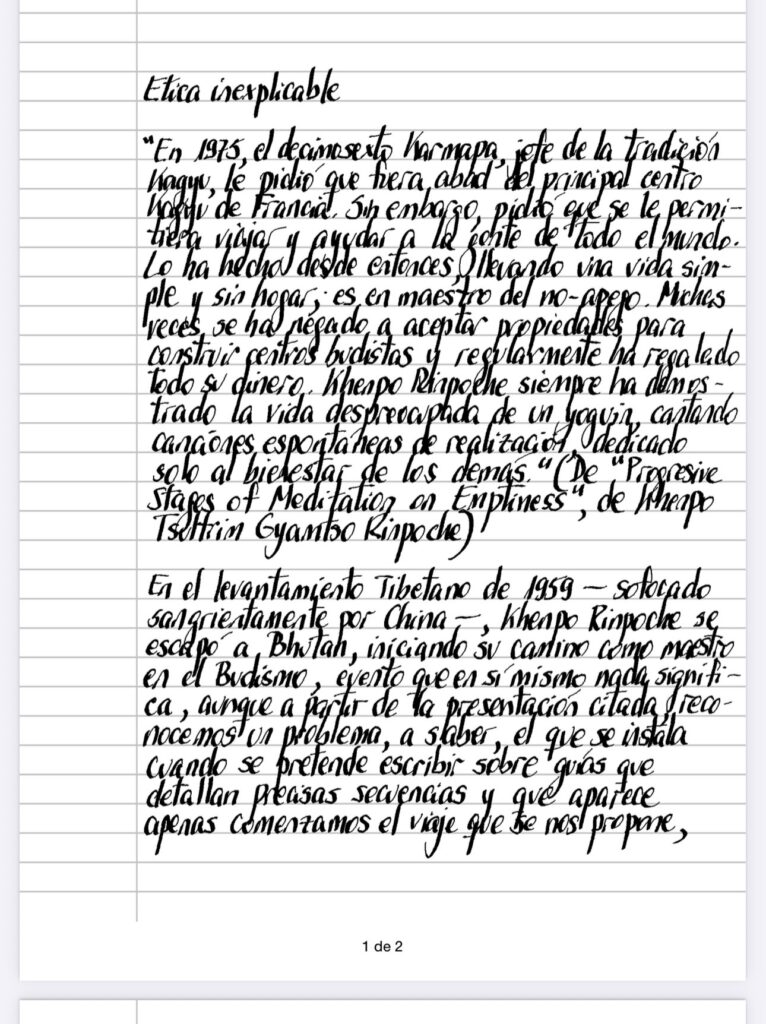 Etica inexplicable
"En 1975, el decimosexto Karmapa, jefe de la tradición
Kagyu, le pidió que fuera abad del principal centro
Kagyu de Francia. Sin embargo, pidió que se le permi-
tiera viajar y ayudar a la gente de todo el mundo.
Lo ha hecho desde entonces, llevando una vida sim-
ple y sin hogar; es en maestro del no-apego. Muchas
veces se ha negado a aceptar propiedades para
construir centros budistas y regularmente ha regalado
todo su dinero. Khenpo Rinpoche siempre ha demos-
trado la vida despreocupada de un yoguin, cantando
canciones espontáneas de realización, dedicado
solo al bienestar de los demás." (De "Progresive
Stages of Meditation on Emptiness", de Khenpo
Tsultrim Gyamtso Rinpoche)
En el levantamiento Tibetano de 1959 – sofocado
sangrientamente por China –, Khenpo Rinpoche se
escapó a Bhutan, iniciando su camino como maestro
en el Budismo, evento que en sí mismo nada signifi-
ca, aunque a partir de la presentación citada reco-
nocemos un problema, a saber, el que se instala
cuando se pretende escribir sobre guías que
detallan precisas secuencias y que aparece
apenas comenzamos el viaje que se nos propone,
1 de 2